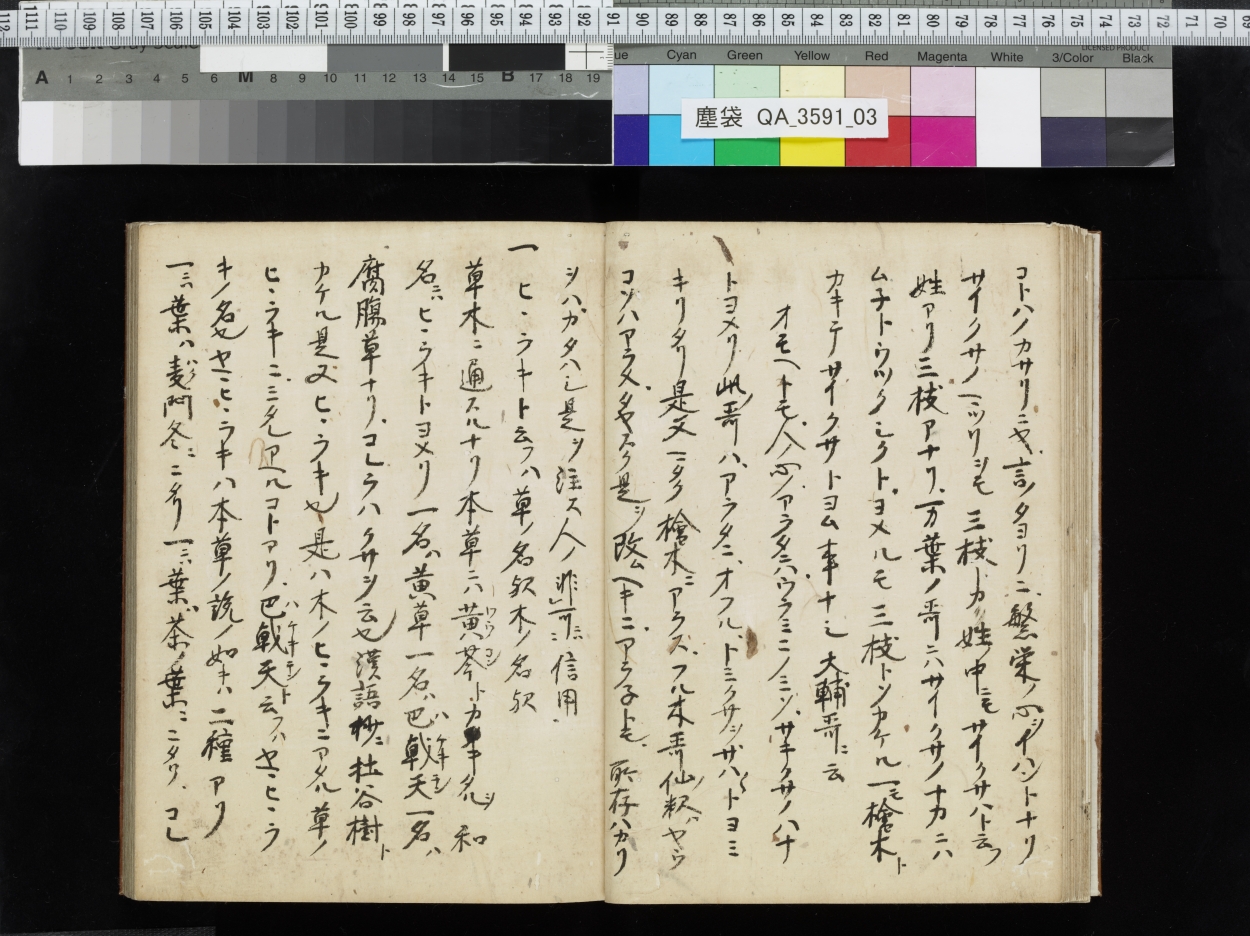 塵袋 QA_3591_03
Cyan Green Yellow Red Magenta White 3/Color Black
LICENSED PRODUCT
A 1 2 3 4 5 6 M 8 9 10 11 12 13 14 15 B 17 18 19
コトハノカサリニヤ言ノタヨリニ繁栄ノ心ヲイハントナリ
サイクサノヘツリシモ三枝トカク姓ノ中ニモサイクサハト云フ
姓アリ三枝アナリ万葉ノ哥ニハサイクサノナカニハ
ムネトウツクシクトヨメルモ三枝トソカケル一ニモ檜木ト
カキテサイクサトヨム事ナシ大輔哥ニ云
オモヘトモ人ノ心ノアラタニハウラミニノミソサキクサノハナ
トヨメリ此哥ハアラタニオフルトミクサヲサハトヨミ
キリタリ是又一タク檜木ニアラスフル木哥仙ノ釈ハヤウ
コソハアラメタヤスク是ヲ改ムヘキニアラ子トモ所存ハカリ
シハカタハシ是ヲ注ス人ノ非可ニ信用
一ヒヽラキト云フハ草ノ名歟木ノ名歟
草木ニ通スルナリ本草ニハ黄芩トカキタルヲ和
名ニハヒヽラキトヨメリ一名ハ黄草一名ハ巴戟天一名ハ
腐腸草ナリコレラハクサヲ云也漢語抄ニ杜谷樹ト
カケル是又ヒヽラキ也是ハ木ノヒヽラキニアタル草ノ
ヒヽラキニ三タアルコトアリ巴戟天ト云フハヤヒヽラ
キノ名也ヤヒヽラキハ本草ノ説ノ如キハ二種アリ
一ニハ葉ハ麦門冬ニニタリ一ニハ葉ハ茶ノ葉ニニタリコレ